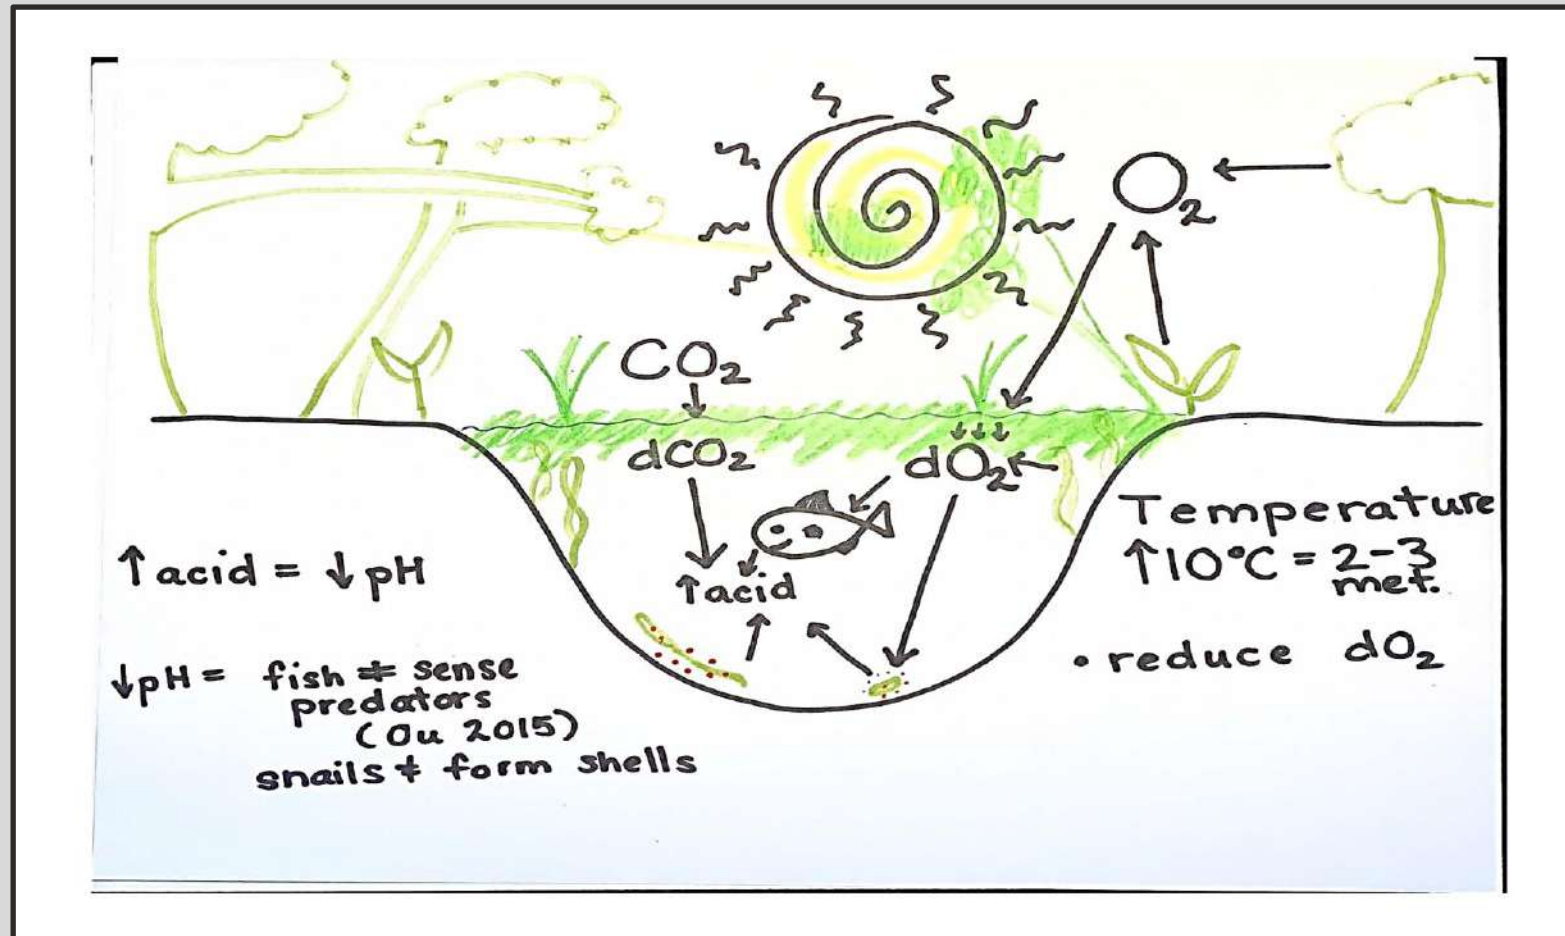 O₂
CO₂
dCO₂
dO₂
↑acid
↑acid = ↓pH
↓pH = fish ≠ sense
predators
(Ou 2015)
snails ≠ form shells
Temperature
↑10°C = 2-3
met.
• reduce dO₂